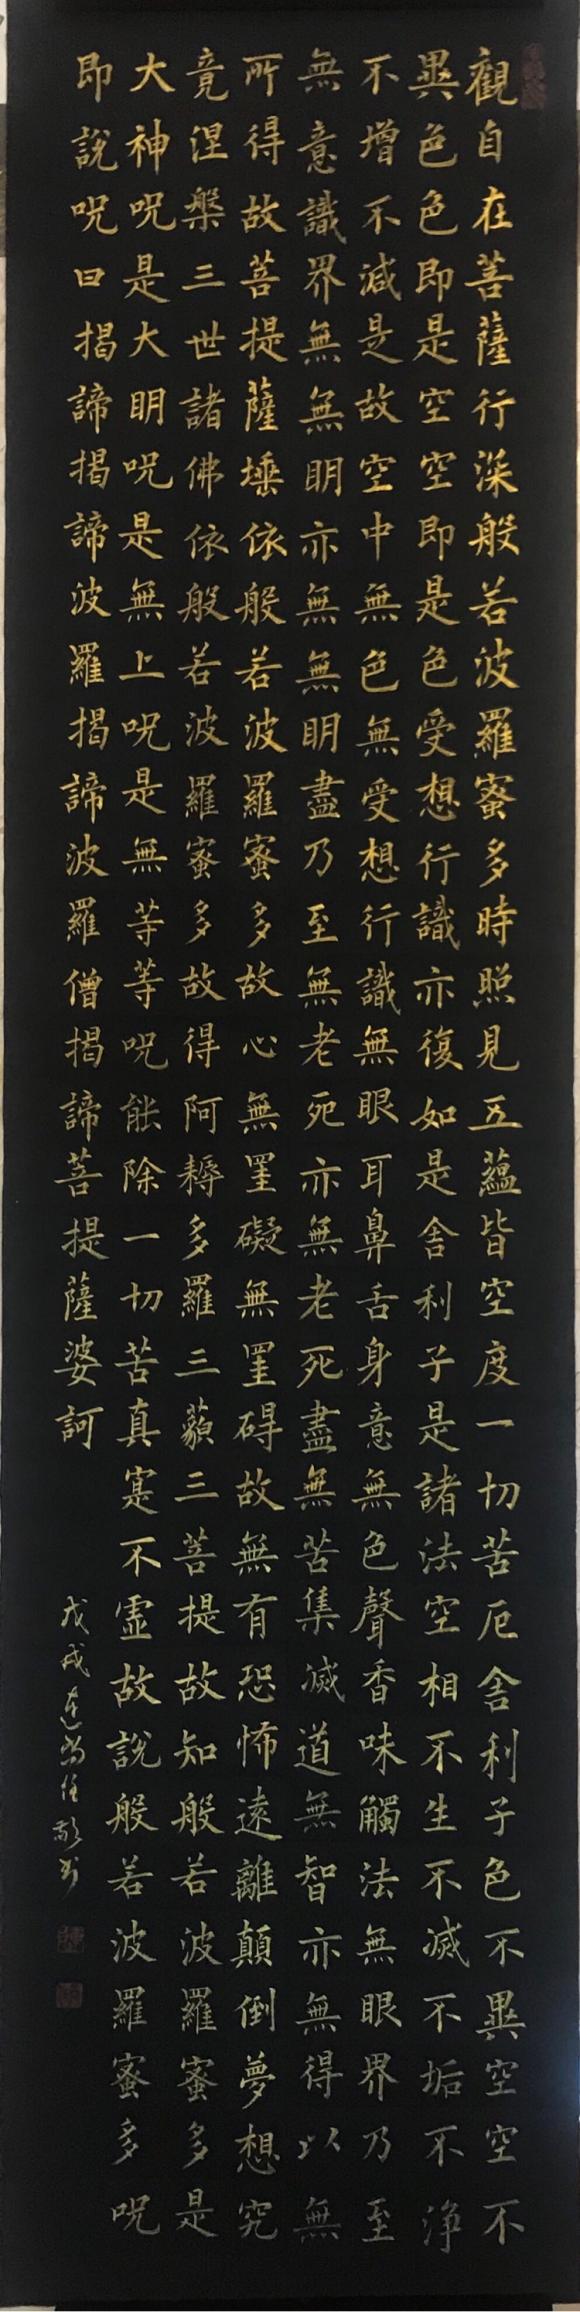 觀自在菩薩行深般若波羅蜜多時照見五蘊皆空度一切苦厄舍利子色不異空空不
異色色即是空空即是色受想行識亦復如是舍利子是諸法空相不生不滅不垢不淨
不增不減是故空中無色無受想行識無眼耳鼻舌身意無色聲香味觸法無眼界乃至
無意識界無無明亦無無明盡乃至無老死亦無老死盡無苦集滅道無智亦無得以無
所得故菩提薩埵依般若波羅蜜多故心無罣礙無罣碍故無有恐怖遠離顛倒夢想究
竟涅槃三世諸佛依般若波羅蜜多故得阿耨多羅三藐三菩提故知般若波羅蜜多是
大神呪是大明呪是無上呪是無等等呪能除一切苦真寔不虛故說般若波羅蜜多呪
即說呪曰揭諦揭諦波羅揭諦波羅僧揭諦菩提薩婆訶
戊戌敬书